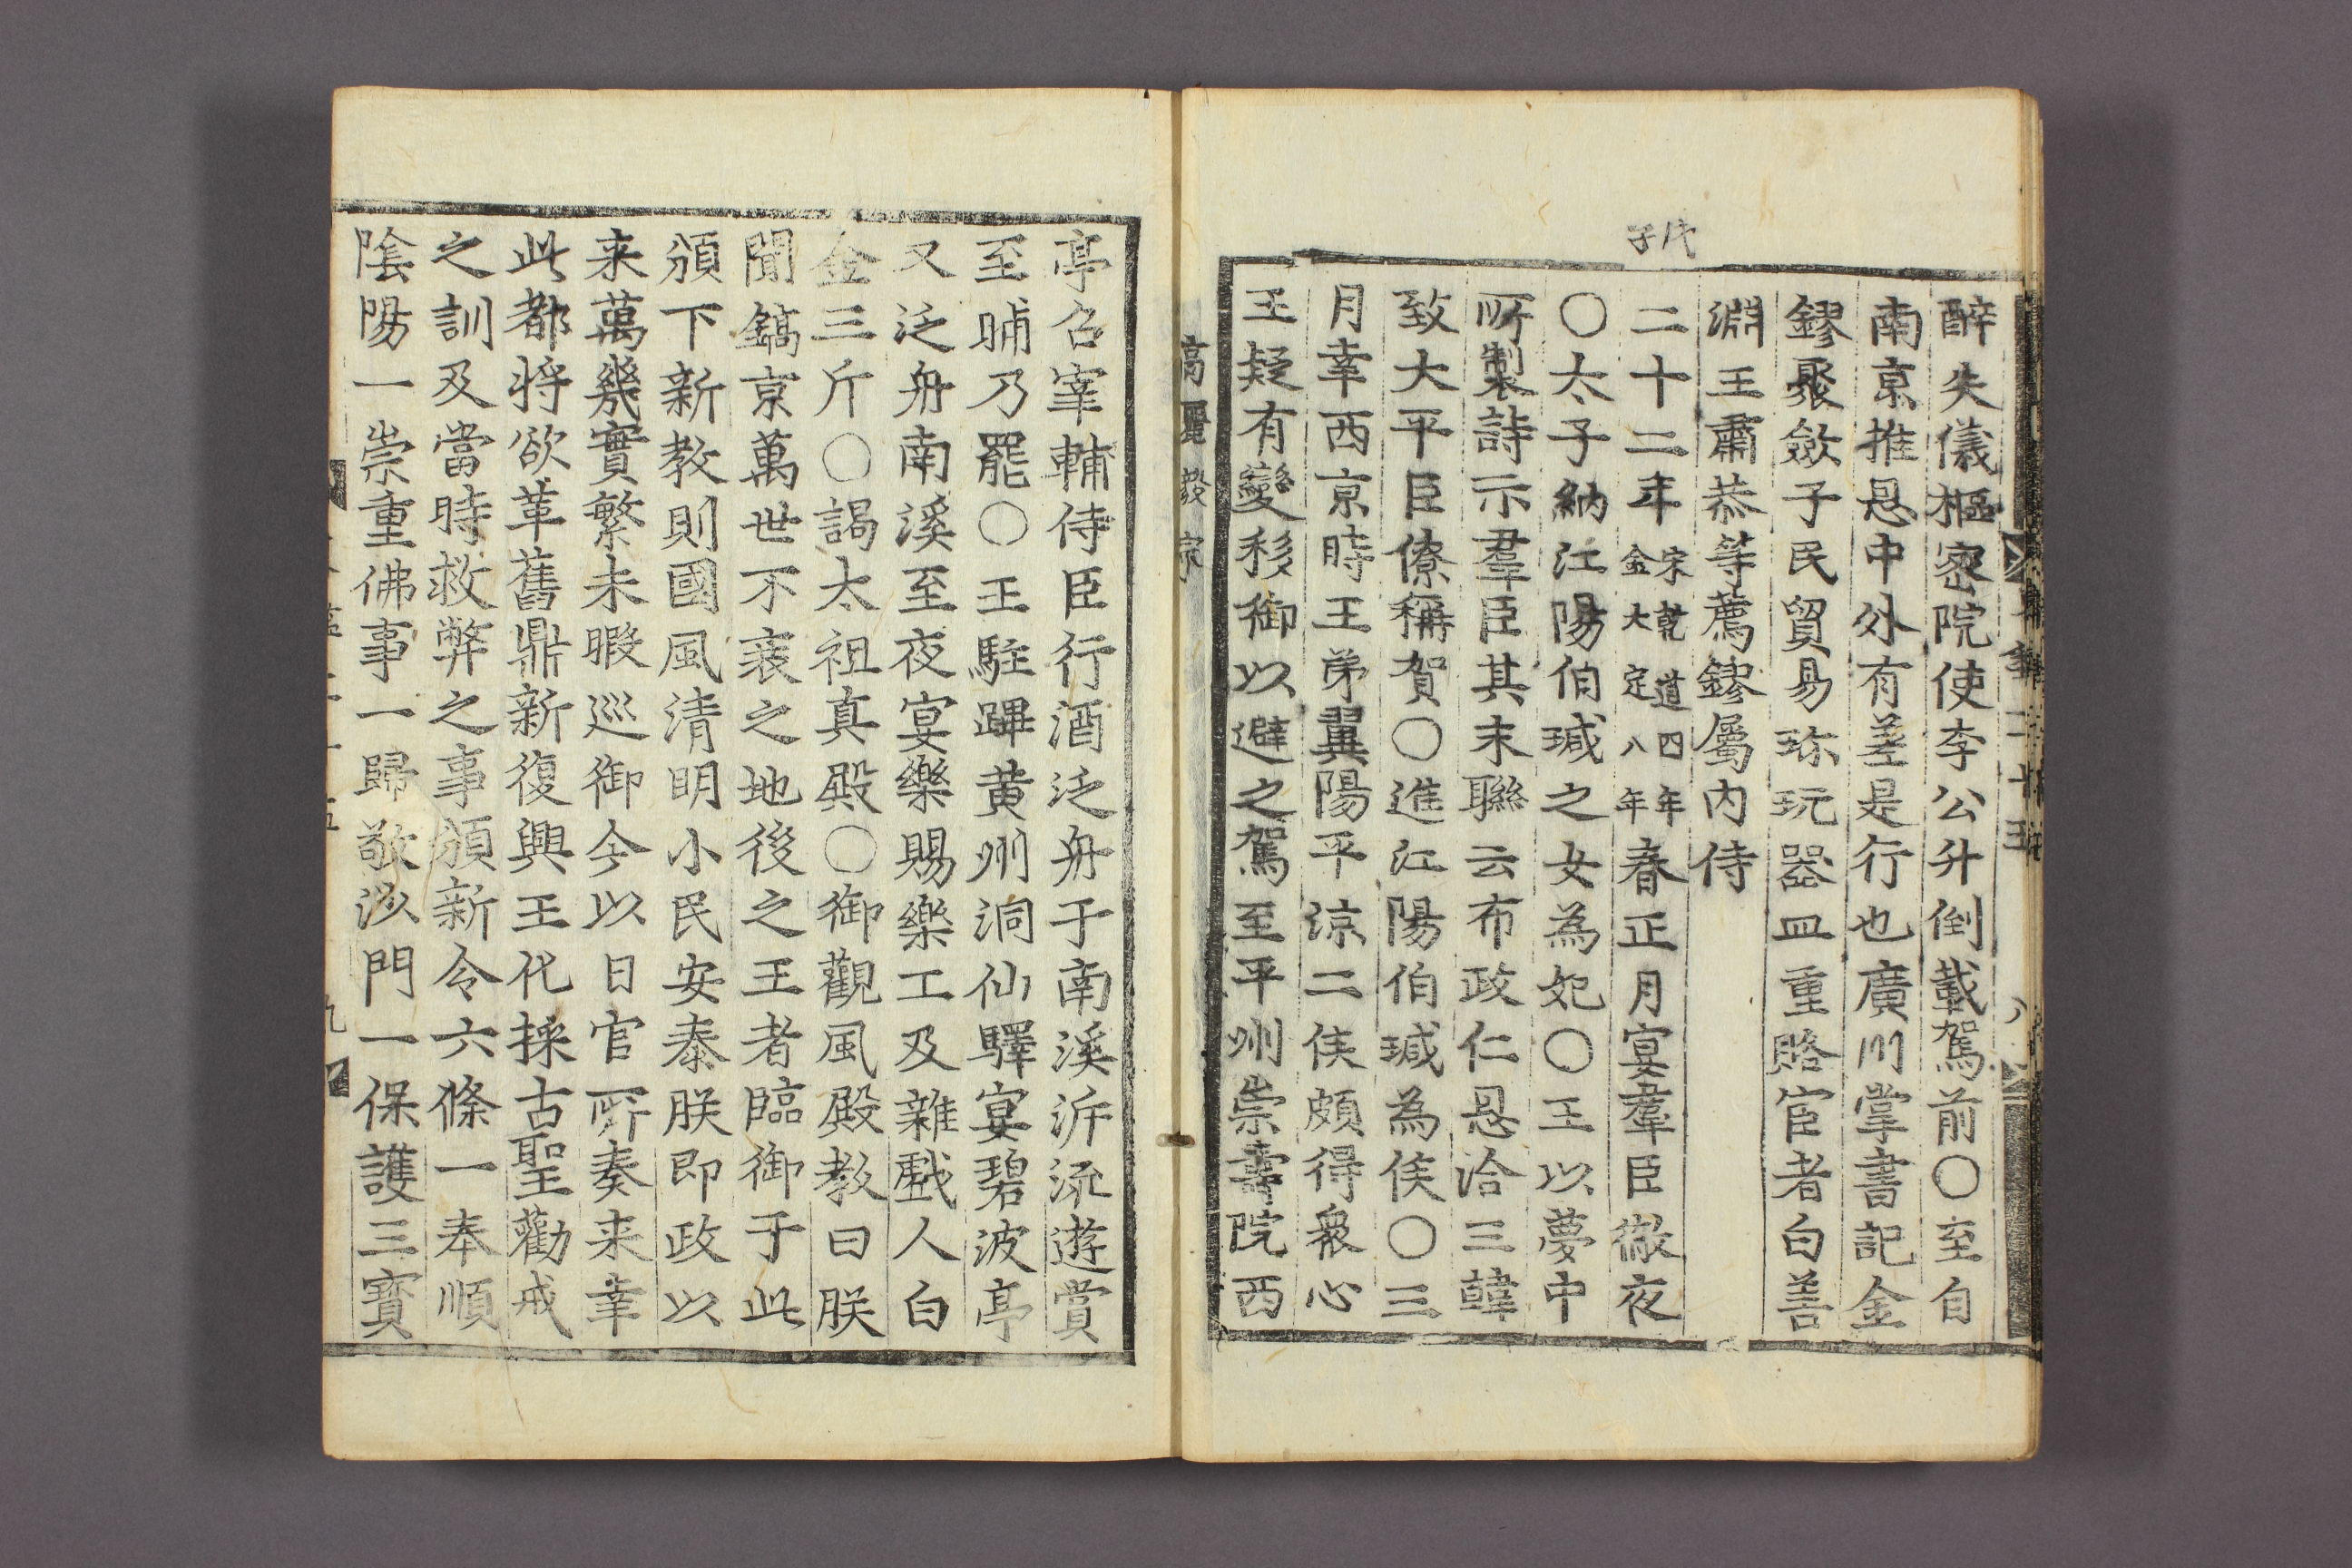 戊子
醉失儀樞密院使李公升倒載駕前〇至自
南京推恩中外有差是行也廣州掌書記金
鏐聚斂子民貿易珎玩器皿重賂宦者白善
淵王肅恭等薦鏐屬內侍
二十二年宋乾道四年金大定八年春正月宴羣臣徹夜
〇太子納江陽伯瑊之女為妃〇王以夢中
所製詩示羣臣其末聯云布政仁恩洽三韓
致大平臣僚稱賀〇進江陽伯瑊為侯〇三
月幸西京時王弟翼陽平涼二侯頗得衆心
王疑有變移御以避之駕至平州崇壽院西
高麗毅宗
亭召宰輔侍臣行酒泛舟于南溪泝流遊賞
至晡乃罷〇王駐蹕黃州洞仙驛宴碧波亭
又泛舟南溪至夜宴樂賜樂工及雜戲人白
金三斤〇謁太祖真殿〇御觀風殿教曰朕
聞鎬京萬世不衰之地後之王者臨御于此
頒下新教則國風清明小民安泰朕即政以
来萬幾實繁未暇巡御今以日官所奏来幸
此都将欲革舊鼎新復興王化採古聖勸戒
之訓及當時救弊之事頒新令六條一奉順
陰陽一崇重佛事一歸敬沙門一保護三寳